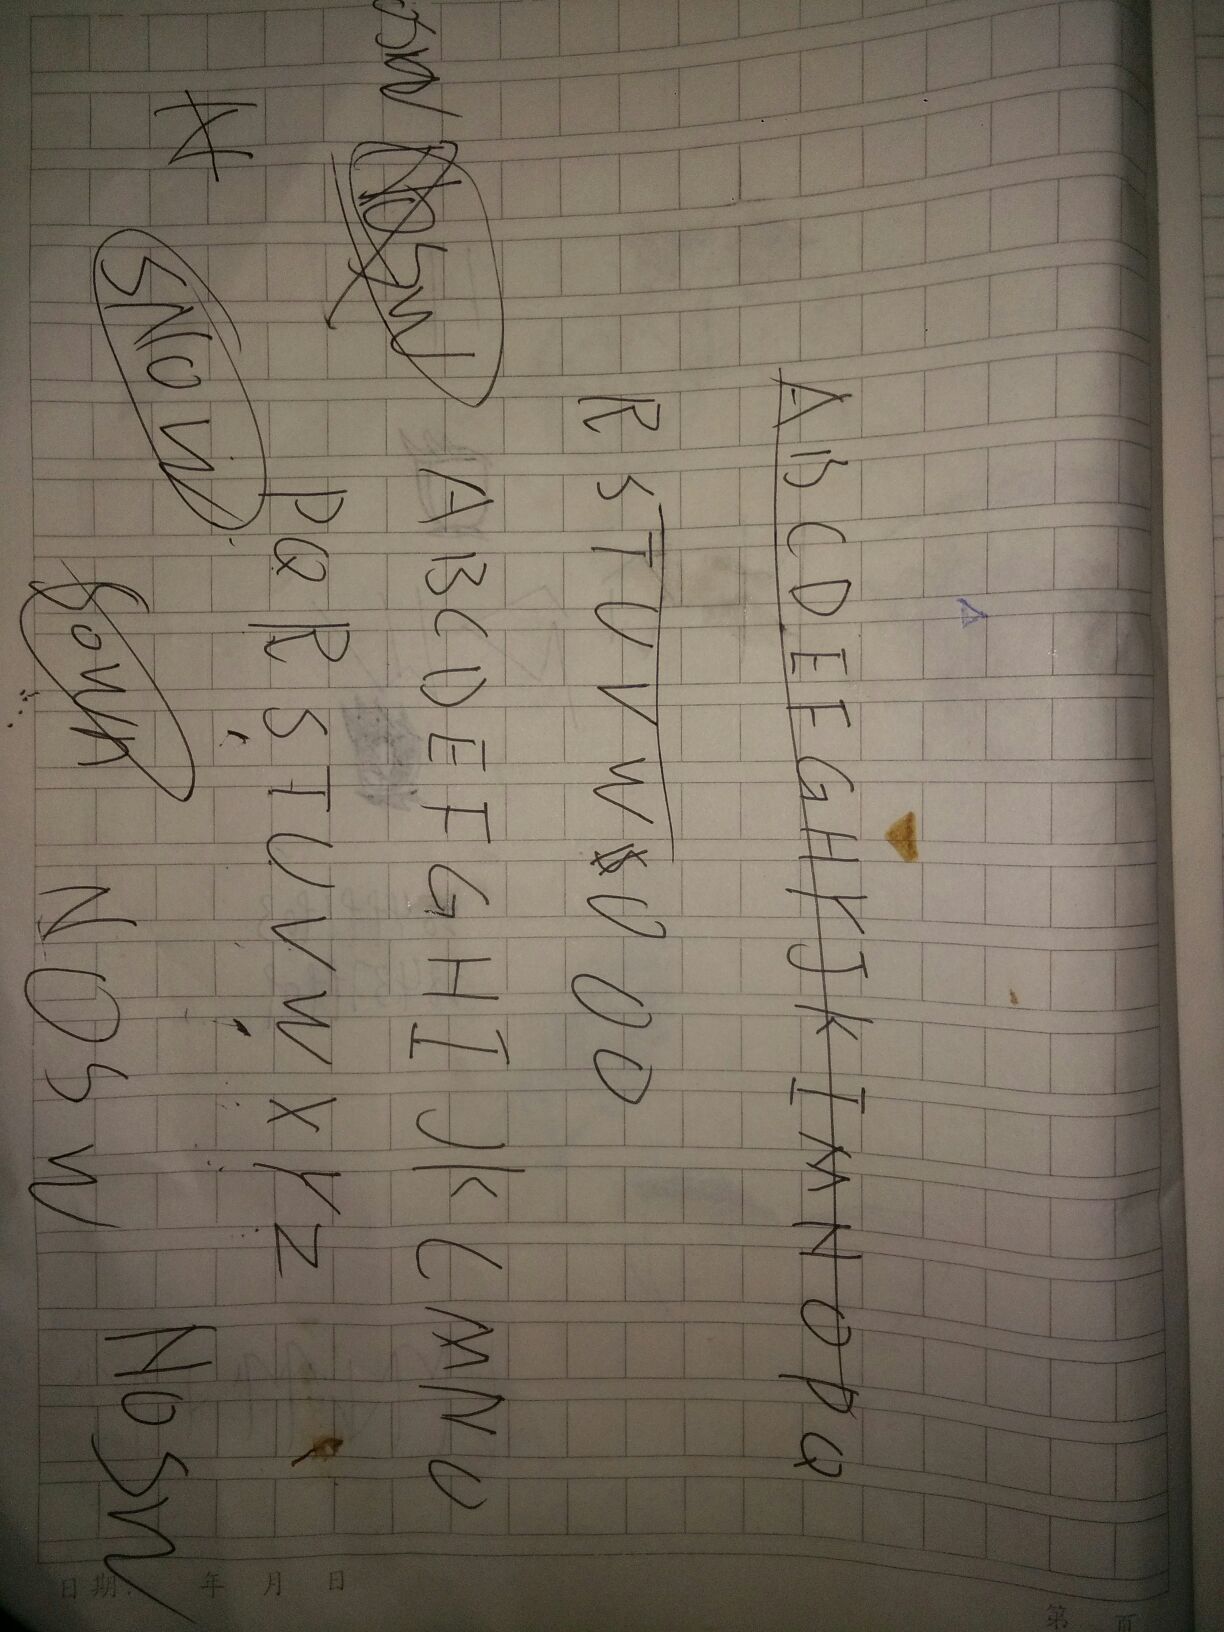 ABCDEFGHYJKIMNOPQ
RSTUVW
UOO
ABCDEFGHIJKLMNO
PQRSTUVWXYZ
NOSW
SNOW
NOSW
NOSW
日期: 年 月 日
第 页